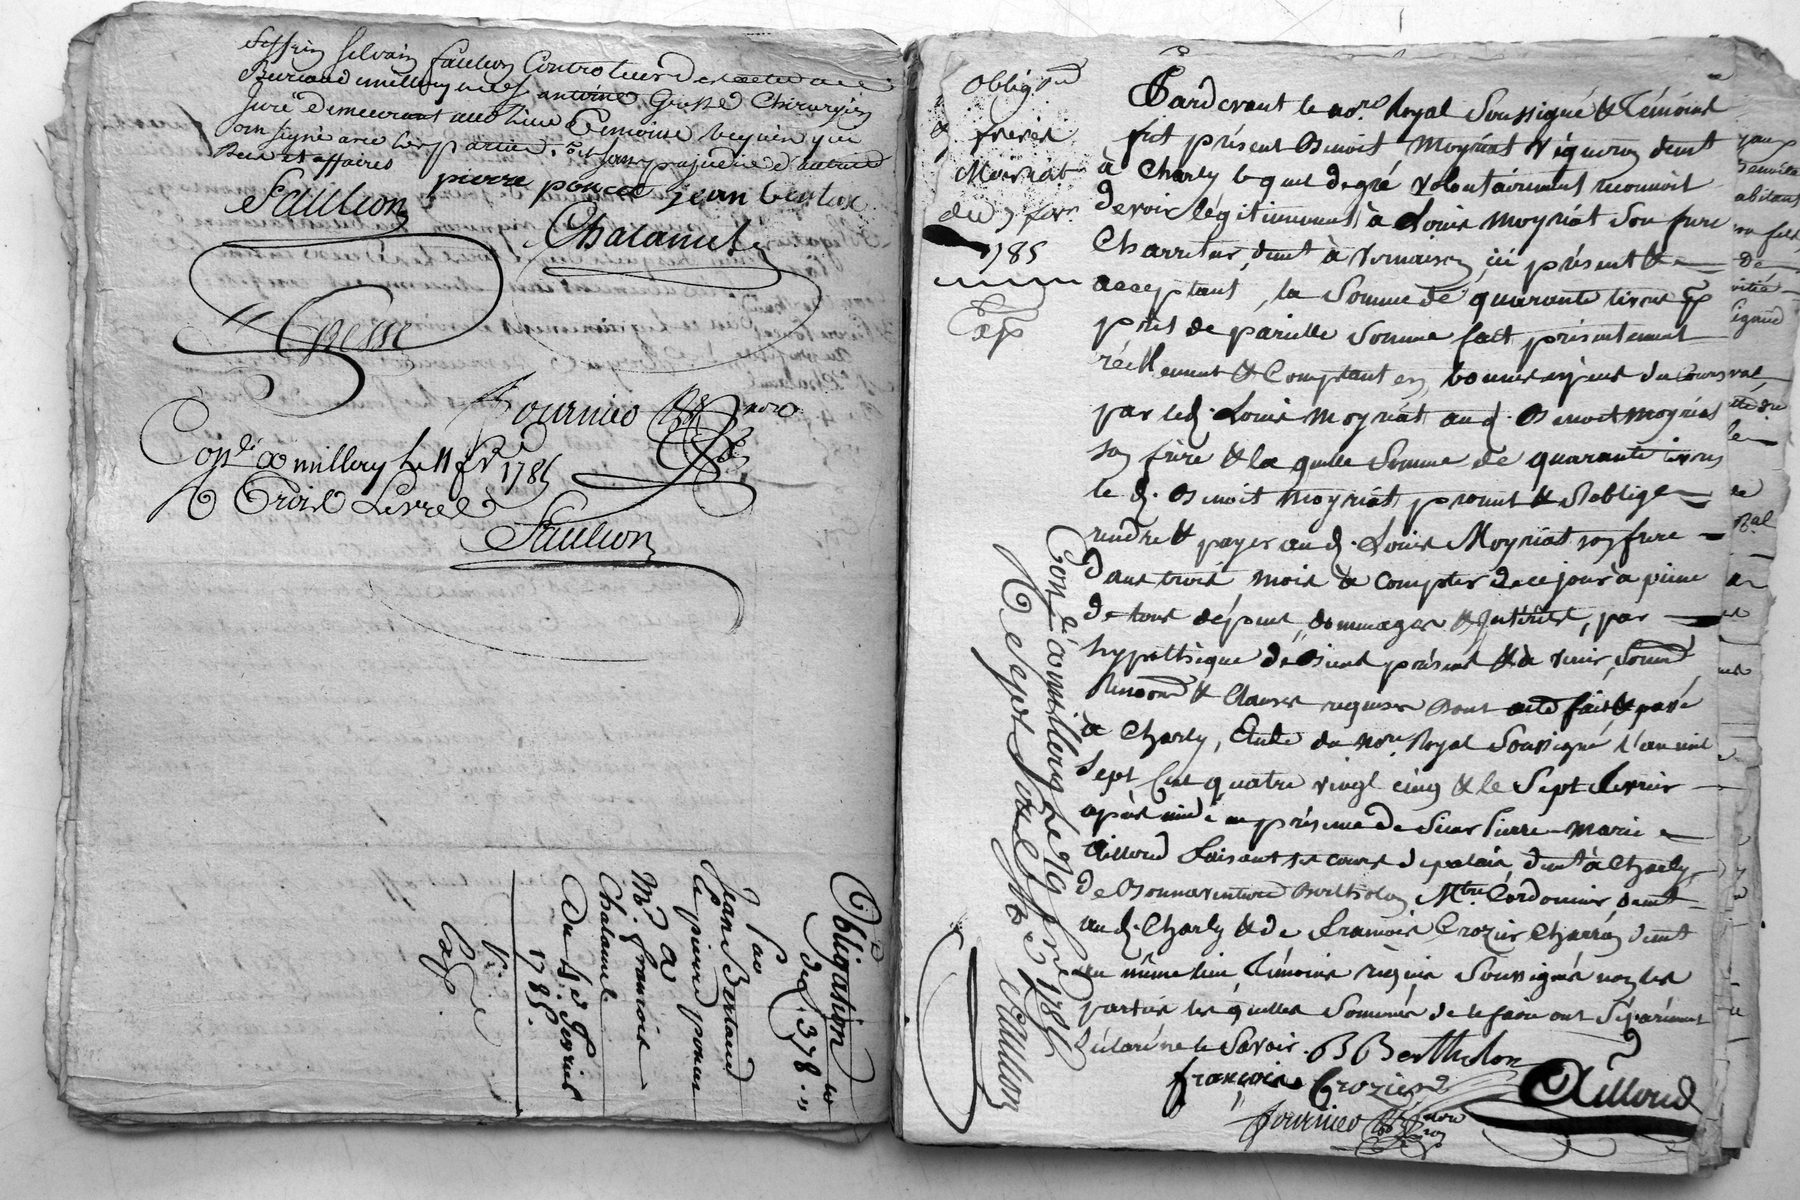 Silvain Faulion Controlleur
antoine Gresse Chirurgien
Juré Demeurant audit lieu Temoins requis qui
ont signé avec les parties
et affaires
pierre poncet jean bertaud
Faulion
Chalamel
Gresse
Fournieo nore
Con.lé a millery le 11 f.er 1785
R Trois Livres
Faulion
Obligation
de 378.
par
Jean Bertaud
& pierre poncet
a
Mr. francois
Chalamel
Du 4 fevrier
1785.
Exp
Oblig.on
frerès
Moiriat
du 7 fevr.
1785
Exp
Pardevant le no.re Royal Soussigné & Témoins
fut présent Benoit Moyriat Vigneron demt
à Charly lequel de gré volontairement reconnoit
devoir légitimement à Louis Moyriat Son frere
Charretier, demt à Vernaison, ici présent &
acceptant, la Somme de quarante livres
prêt de pareille Somme fait présentement
réellement & Comptant en bonnes espèces du Cours
par led. Louis Moyriat aud. Benoit Moyriat
son frère & la quelle Somme de quarante livres
le d. Benoit Moyriat promet & S'oblige
rendre & payer aud. Louis Moyriat son frere
dans trois mois à compter de ce jour à peine
de tous dépens, dommages & Intérêts, par
hypothèque de Biens présens & à venir, Soumon
Renoon & Clauses requises Dont acte fait & passé
à Charly, Etude du no.re Royal Soussigné l'an mil
Sept Cent quatre vingt cinq & le Sept fevrier
après midi en présence de Sieur Pierre Marie
Ailloud faisant ses cours de palais, demt à Charly
de Bonnaventure Bertholon, M.tre Cordonier, demt
aud. Charly & de Francois Crozier Charron demt
au même lieu Témoins requis Soussignés non les
parties les quelles Sommées de le faire ont Séparément
déclaré ne le Savoir. B Bertholon
françois Crozier Ailloud
fournieo nore
Con.lé a millery le 19 f.er 1785
R Sept Sols Six d
Faulion